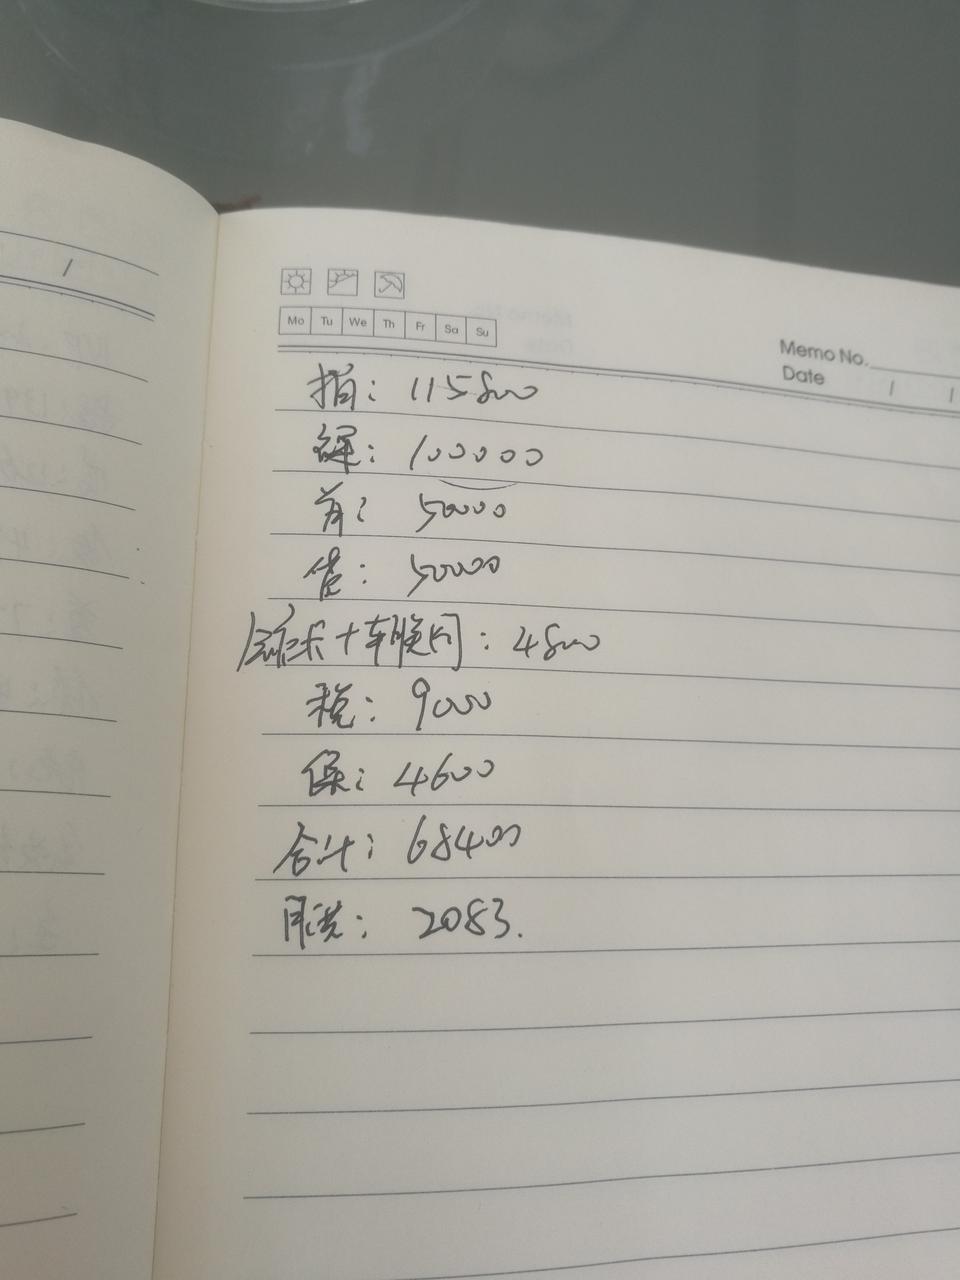 /
Mo Tu We Th Fr Sa Su
Memo No.
Date / /
指: 115800
裸: 100000
首: 50000
贷: 50000
+车联网: 4800
税: 9000
保: 4600
合计: 68400
月供: 2083.